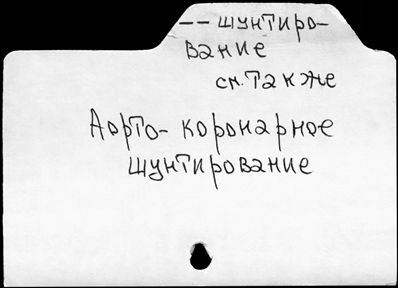 -- шунтиро-
вание
см. также
Аорто- коронарное
шунтирование